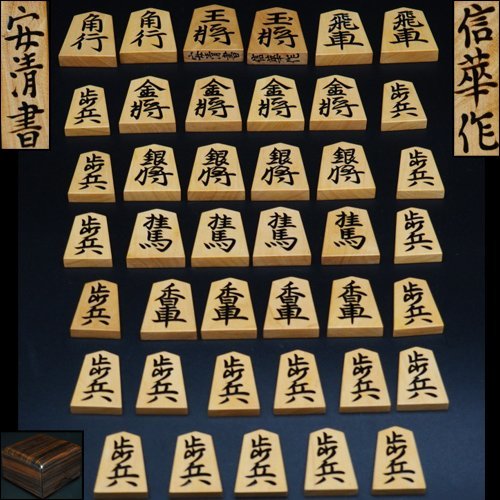 安清書
信華作
角行 角行 王将 玉将 飛車 飛車
安清書 信華作
歩兵 金将 金将 金将 金将 歩兵
歩兵 銀将 銀将 銀将 銀将 歩兵
歩兵 桂馬 桂馬 桂馬 桂馬 歩兵
歩兵 香車 香車 香車 香車 歩兵
歩兵 歩兵 歩兵 歩兵 歩兵 歩兵
歩兵 歩兵 歩兵 歩兵 歩兵